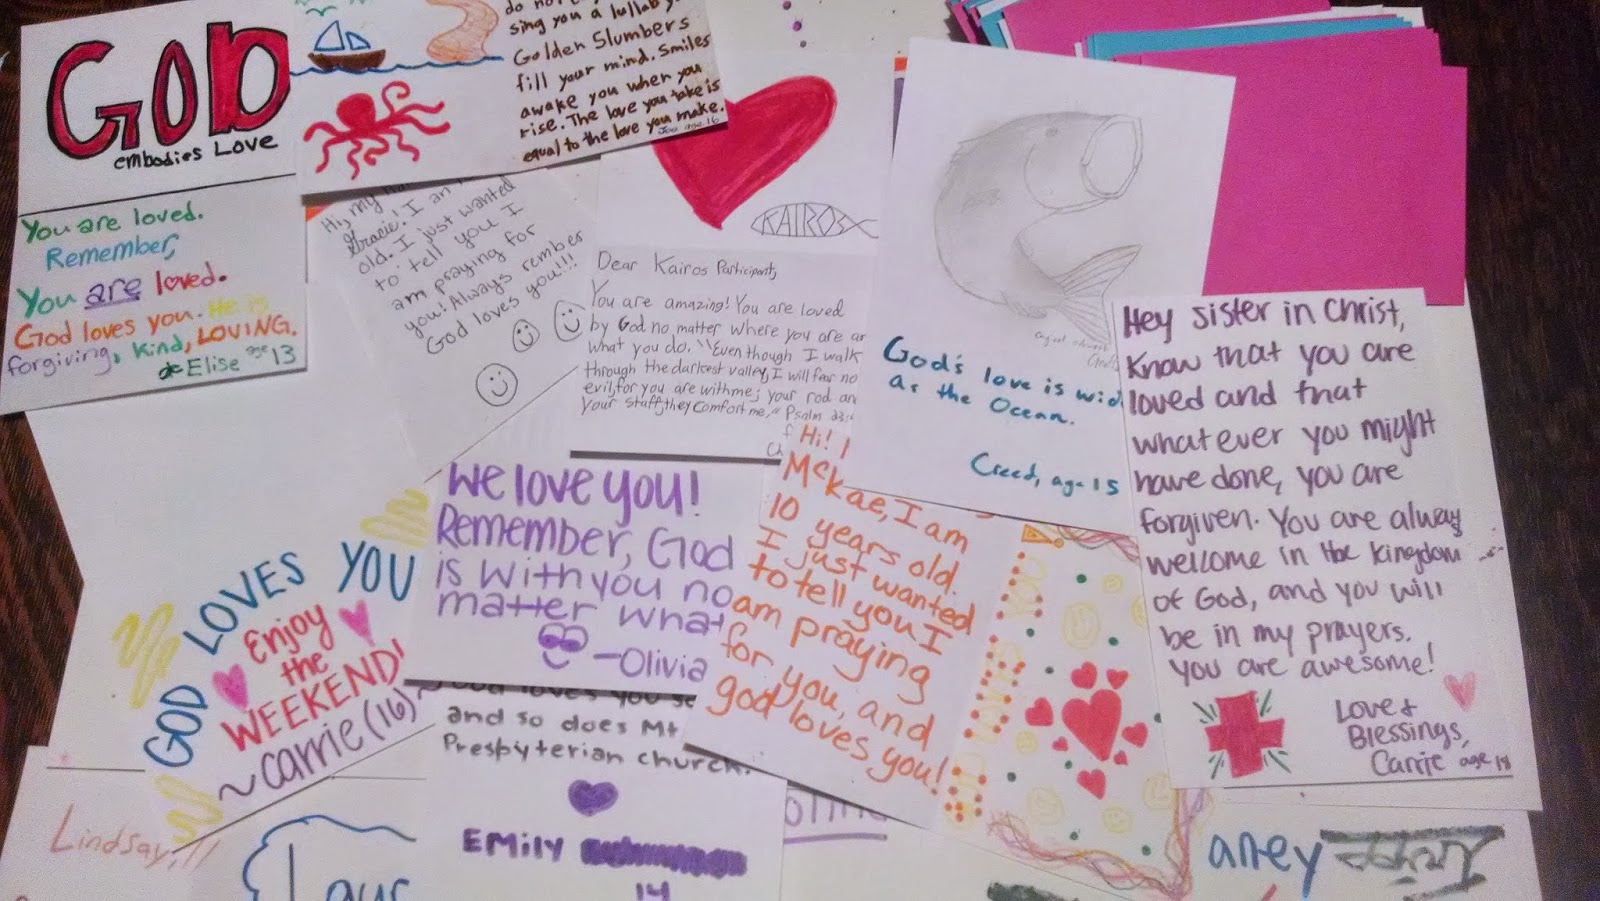 GOD
embodies Love
You are loved.
Remember,
You are loved.
God loves you. He is
forgiving, kind, LOVING.
Elise age 13
do not
sing you a lullaby
Golden Slumbers
fill your mind. Smiles
awake you when you
rise. The love you take is
equal to the love you make.
Joe age 16
Hi, my
Gracie! I am
old. I just wanted
to tell you I
am praying for
you! Always rember
God loves you!!!
KAIROS
Dear Kairos Participant,
You are amazing! You are loved
by God no matter where you are
what you do. "Even though I walk
through the darkest valley, I will fear no
evil, for you are with me; your rod
your staff, they comfort me," Psalm 23:
God's love is wid
as the Ocean.
Creed, age 15
Hey sister in Christ,
Know that you are
loved and that
whatever you might
have done, you are
forgiven. You are alway
welcome in the kingdom
of God, and you will
be in my prayers.
You are awesome!
Love &
Blessings,
Carrie age 18
We love you!
Remember, God
is with you no
matter what
-Olivia
Hi! I
McKae, I am
10 years old.
I just wanted
to tell you I
am praying
for you, and
god loves you!
GOD LOVES YOU
Enjoy
the
WEEKEND!
~Carrie (16)~
God loves you so
and so does Mt
Presbyterian church.
EMily
14
Lindsay, 11
Laur
aney